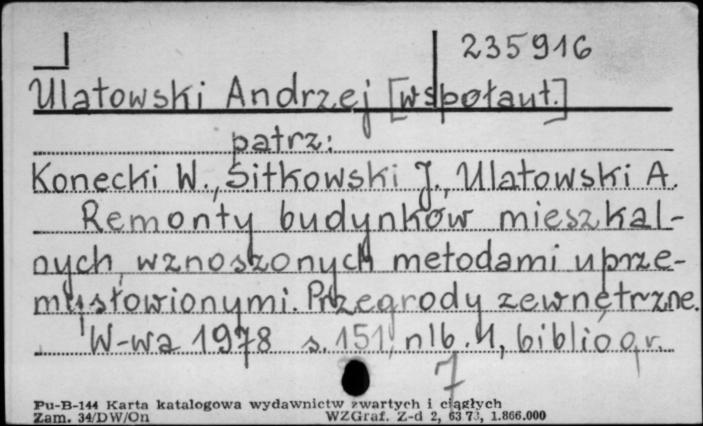 235916
Ulatowski Andrzej [współaut.]
patrz:
Konecki W., Sitkowski J., Ulatowski A.
Remonty budynków mieszkal-
nych wznoszonych metodami uprze-
mysłowionymi. Przegrody zewnętrzne.
W-wa 1978 s. 151, nlb. 1, bibliogr.
7
Pu-B-144 Karta katalogowa wydawnictw zwartych i ciągłych
Zam. 34/DW/On WZGraf. Z-d 2, 63 73, 1.866.000